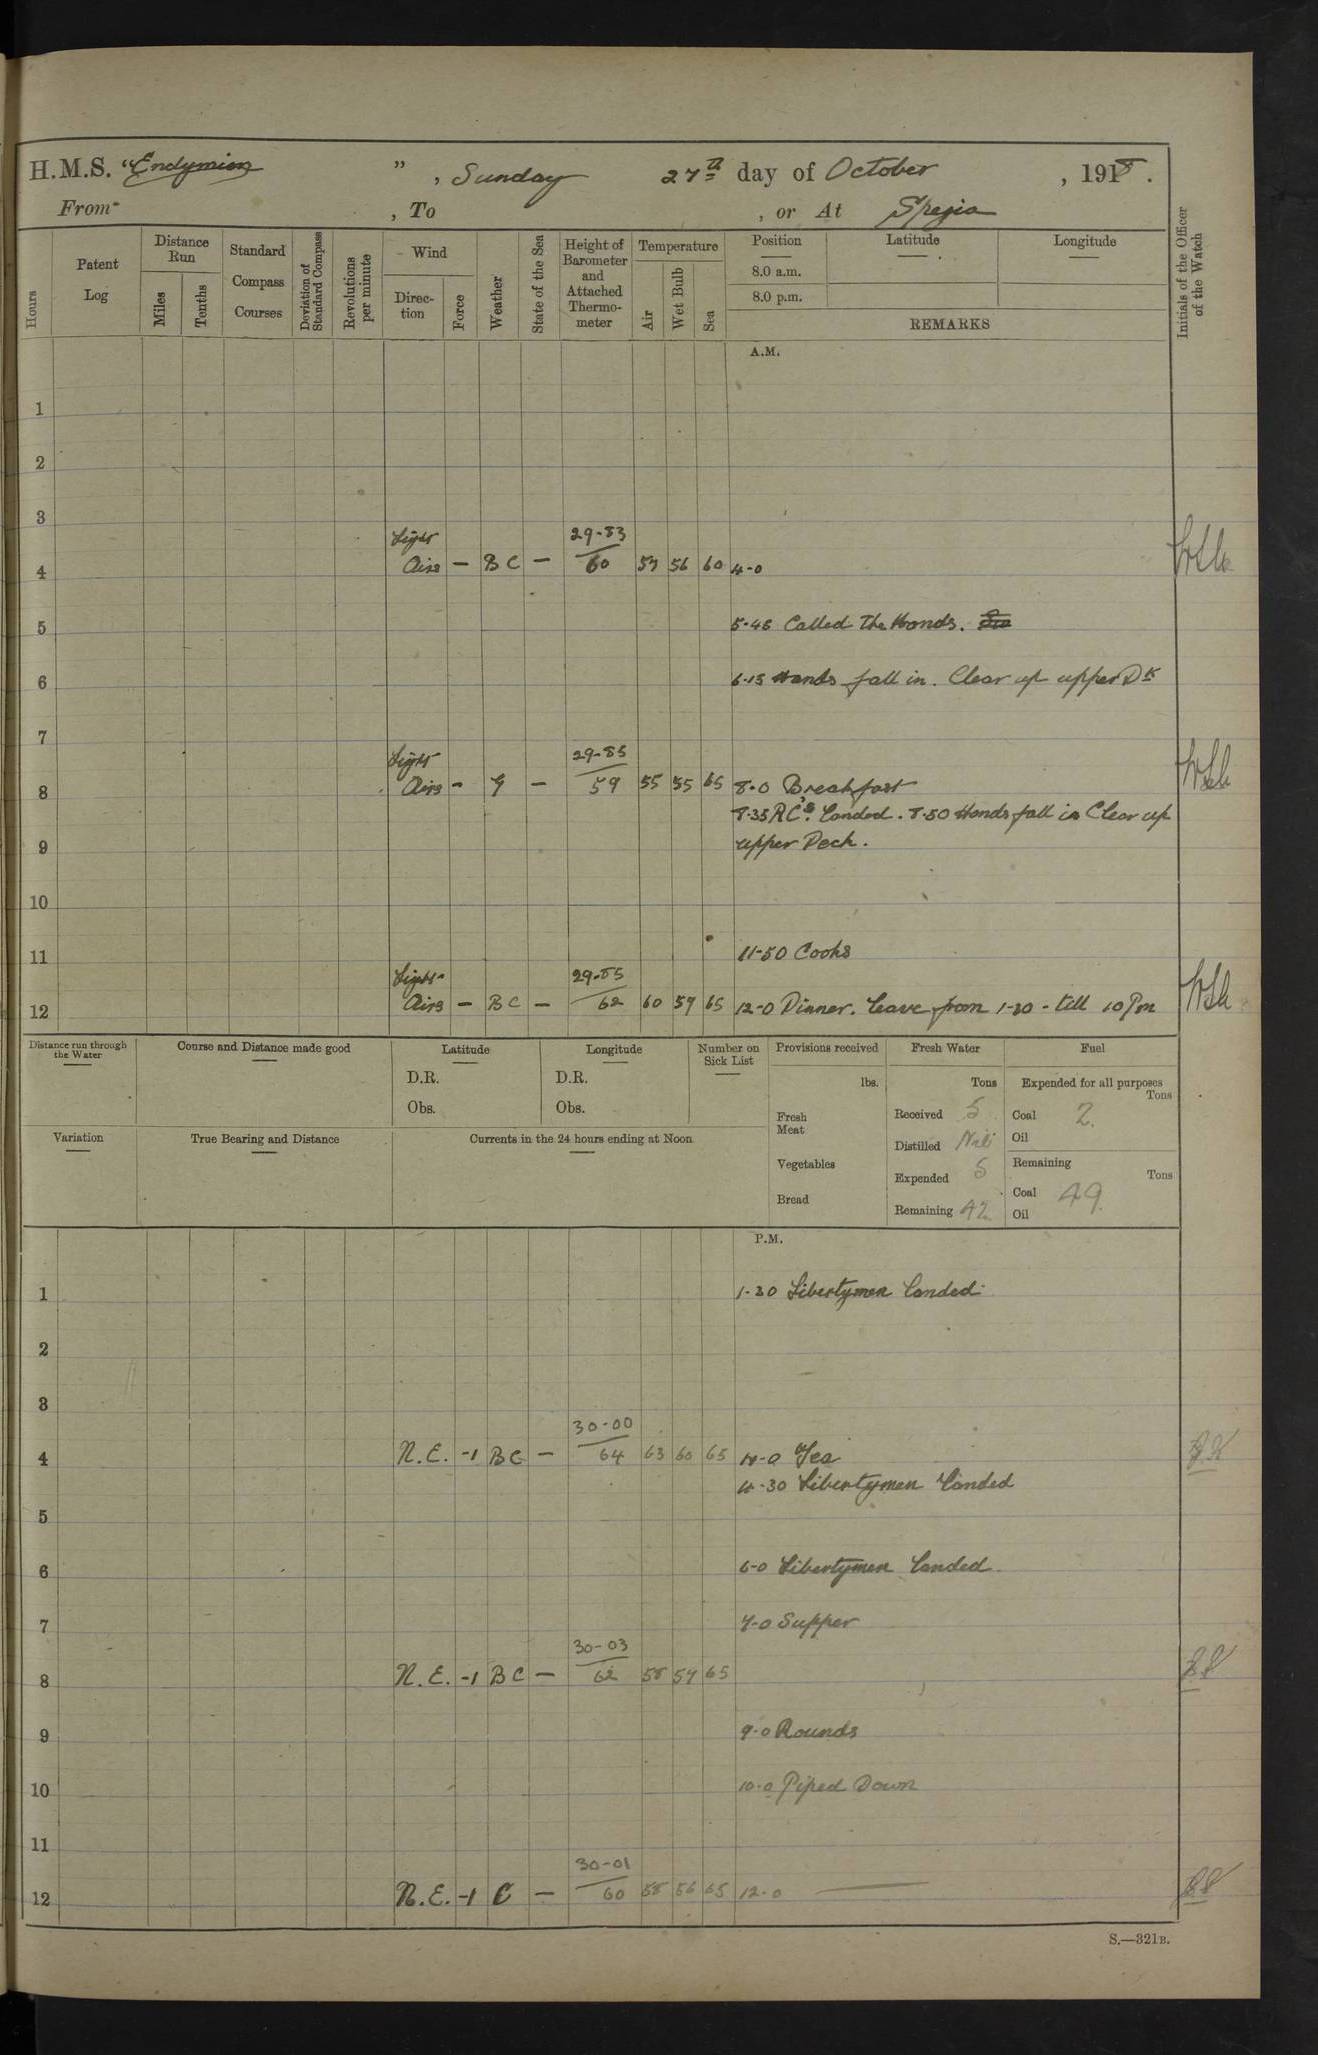 H.M.S. "Endymion", Sunday 27th day of October, 1918.
From , To , or At Spezia
Hours
Patent Log
Distance Run
Miles
Tenths
Standard Compass Courses
Deviation of Standard Compass
Revolutions per minute
Wind
Direction
Force
Weather
State of the Sea
Height of Barometer and Attached Thermometer
Temperature
Air
Wet Bulb
Sea
Position
8.0 a.m.
8.0 p.m.
Latitude
Longitude
REMARKS
Initials of the Officer of the Watch
A.M.
1
2
3
Light 29-83
4 Airs — BC — 60 57 56 60 4-0
5 5-45 Called the Hands.
6 6-15 Hands fall in. Clear up upper Dk
7
Light 29-85
8 Airs - G — 59 55 55 65 8-0 Breakfast
8-35 RC's. Landed. 8-50 Hands fall in Clear up
9 upper Deck.
10
11 11-50 Cooks
Light 29-85
12 Airs — BC — 62 60 59 65 12-0 Dinner. Leave from 1-30 - till 10 Pm
Distance run through the Water
Course and Distance made good
Latitude
D.R.
Obs.
Longitude
D.R.
Obs.
Number on Sick List
Provisions received
lbs.
Fresh Meat
Vegetables
Bread
Fresh Water
Tons
Received 5
Distilled Nil
Expended 5
Remaining 42
Fuel
Expended for all purposes
Tons
Coal 2.
Oil
Remaining
Tons
Coal 49.
Oil
Variation
True Bearing and Distance
Currents in the 24 hours ending at Noon
P.M.
1 1-30 Libertymen Landed
2
3
30-00
4 N.E. -1 BC — 64 63 60 65 4-0 Tea
4-30 Libertymen Landed
5
6 6-0 Libertymen Landed
7 7-0 Supper
30-03
8 N.E. -1 BC — 62 58 57 65
9 9-0 Rounds
10 10-0 Piped Down
11
30-01
12 N.E. -1 C — 60 58 56 65 12-0 —
S.—321B.